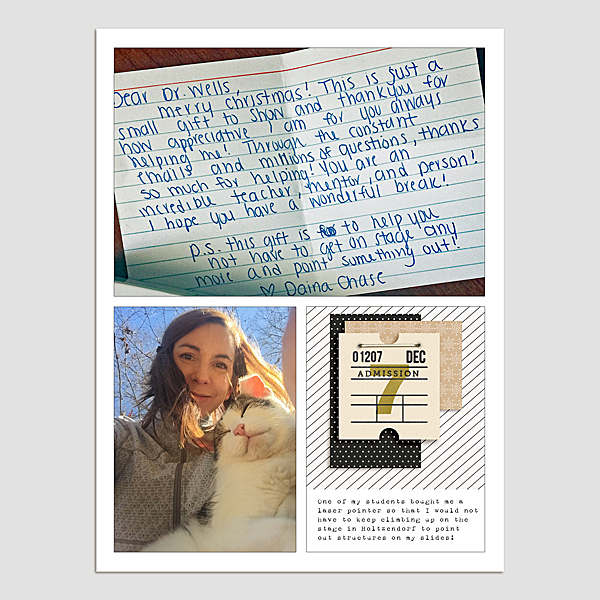 Dear Dr. Wells,
merry christmas! This is just a
small gift to show and thankyou for
how appreciative I am for you always
helping me! Through the constant
emails and millions of questions, thanks
so much for helping! You are an
incredible teacher, mentor, and person!
I hope you have a wonderful break!
p.s. this gift is to help you
not have to get on stage any
more and point something out!!
♡ Daina Chase
01207 DEC
ADMISSION
7
One of my students bought me a
laser pointer so that I would not
have to keep climbing up on the
stage in Holtzendorf to point
out structures on my slides!